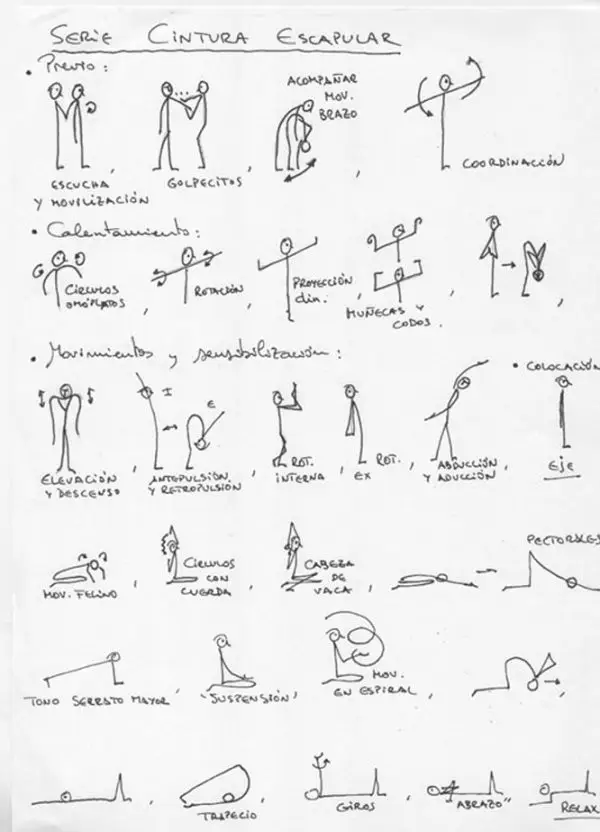 SERIE CINTURA ESCAPULAR
• Previo:
ESCUCHA
Y MOVILIZACIÓN
GOLPECITOS
ACOMPAÑAR
MOV.
BRAZO
COORDINACCIÓN
• Calentamiento:
CIRCULOS
OMÓPLATOS
ROTACIÓN
PROYECCIÓN
din.
MUÑECAS Y
CODOS.
• Movimientos y sensibilización:
ELEVACIÓN
Y DESCENSO
I
E
ANTEPULSIÓN
Y RETROPULSIÓN
ROT.
INTERNA
ROT.
EX
ABDUCCIÓN
Y ADUCCIÓN
• COLOCACIÓN
EJE
MOV. FELINO
CIRCULOS
CON
CUERDA
CABEZA
DE
VACA
PECTORALES
TONO SERRATO MAYOR
"SUSPENSIÓN"
MOV.
EN ESPIRAL
TRAPECIO
GIROS
"ABRAZO"
RELAX